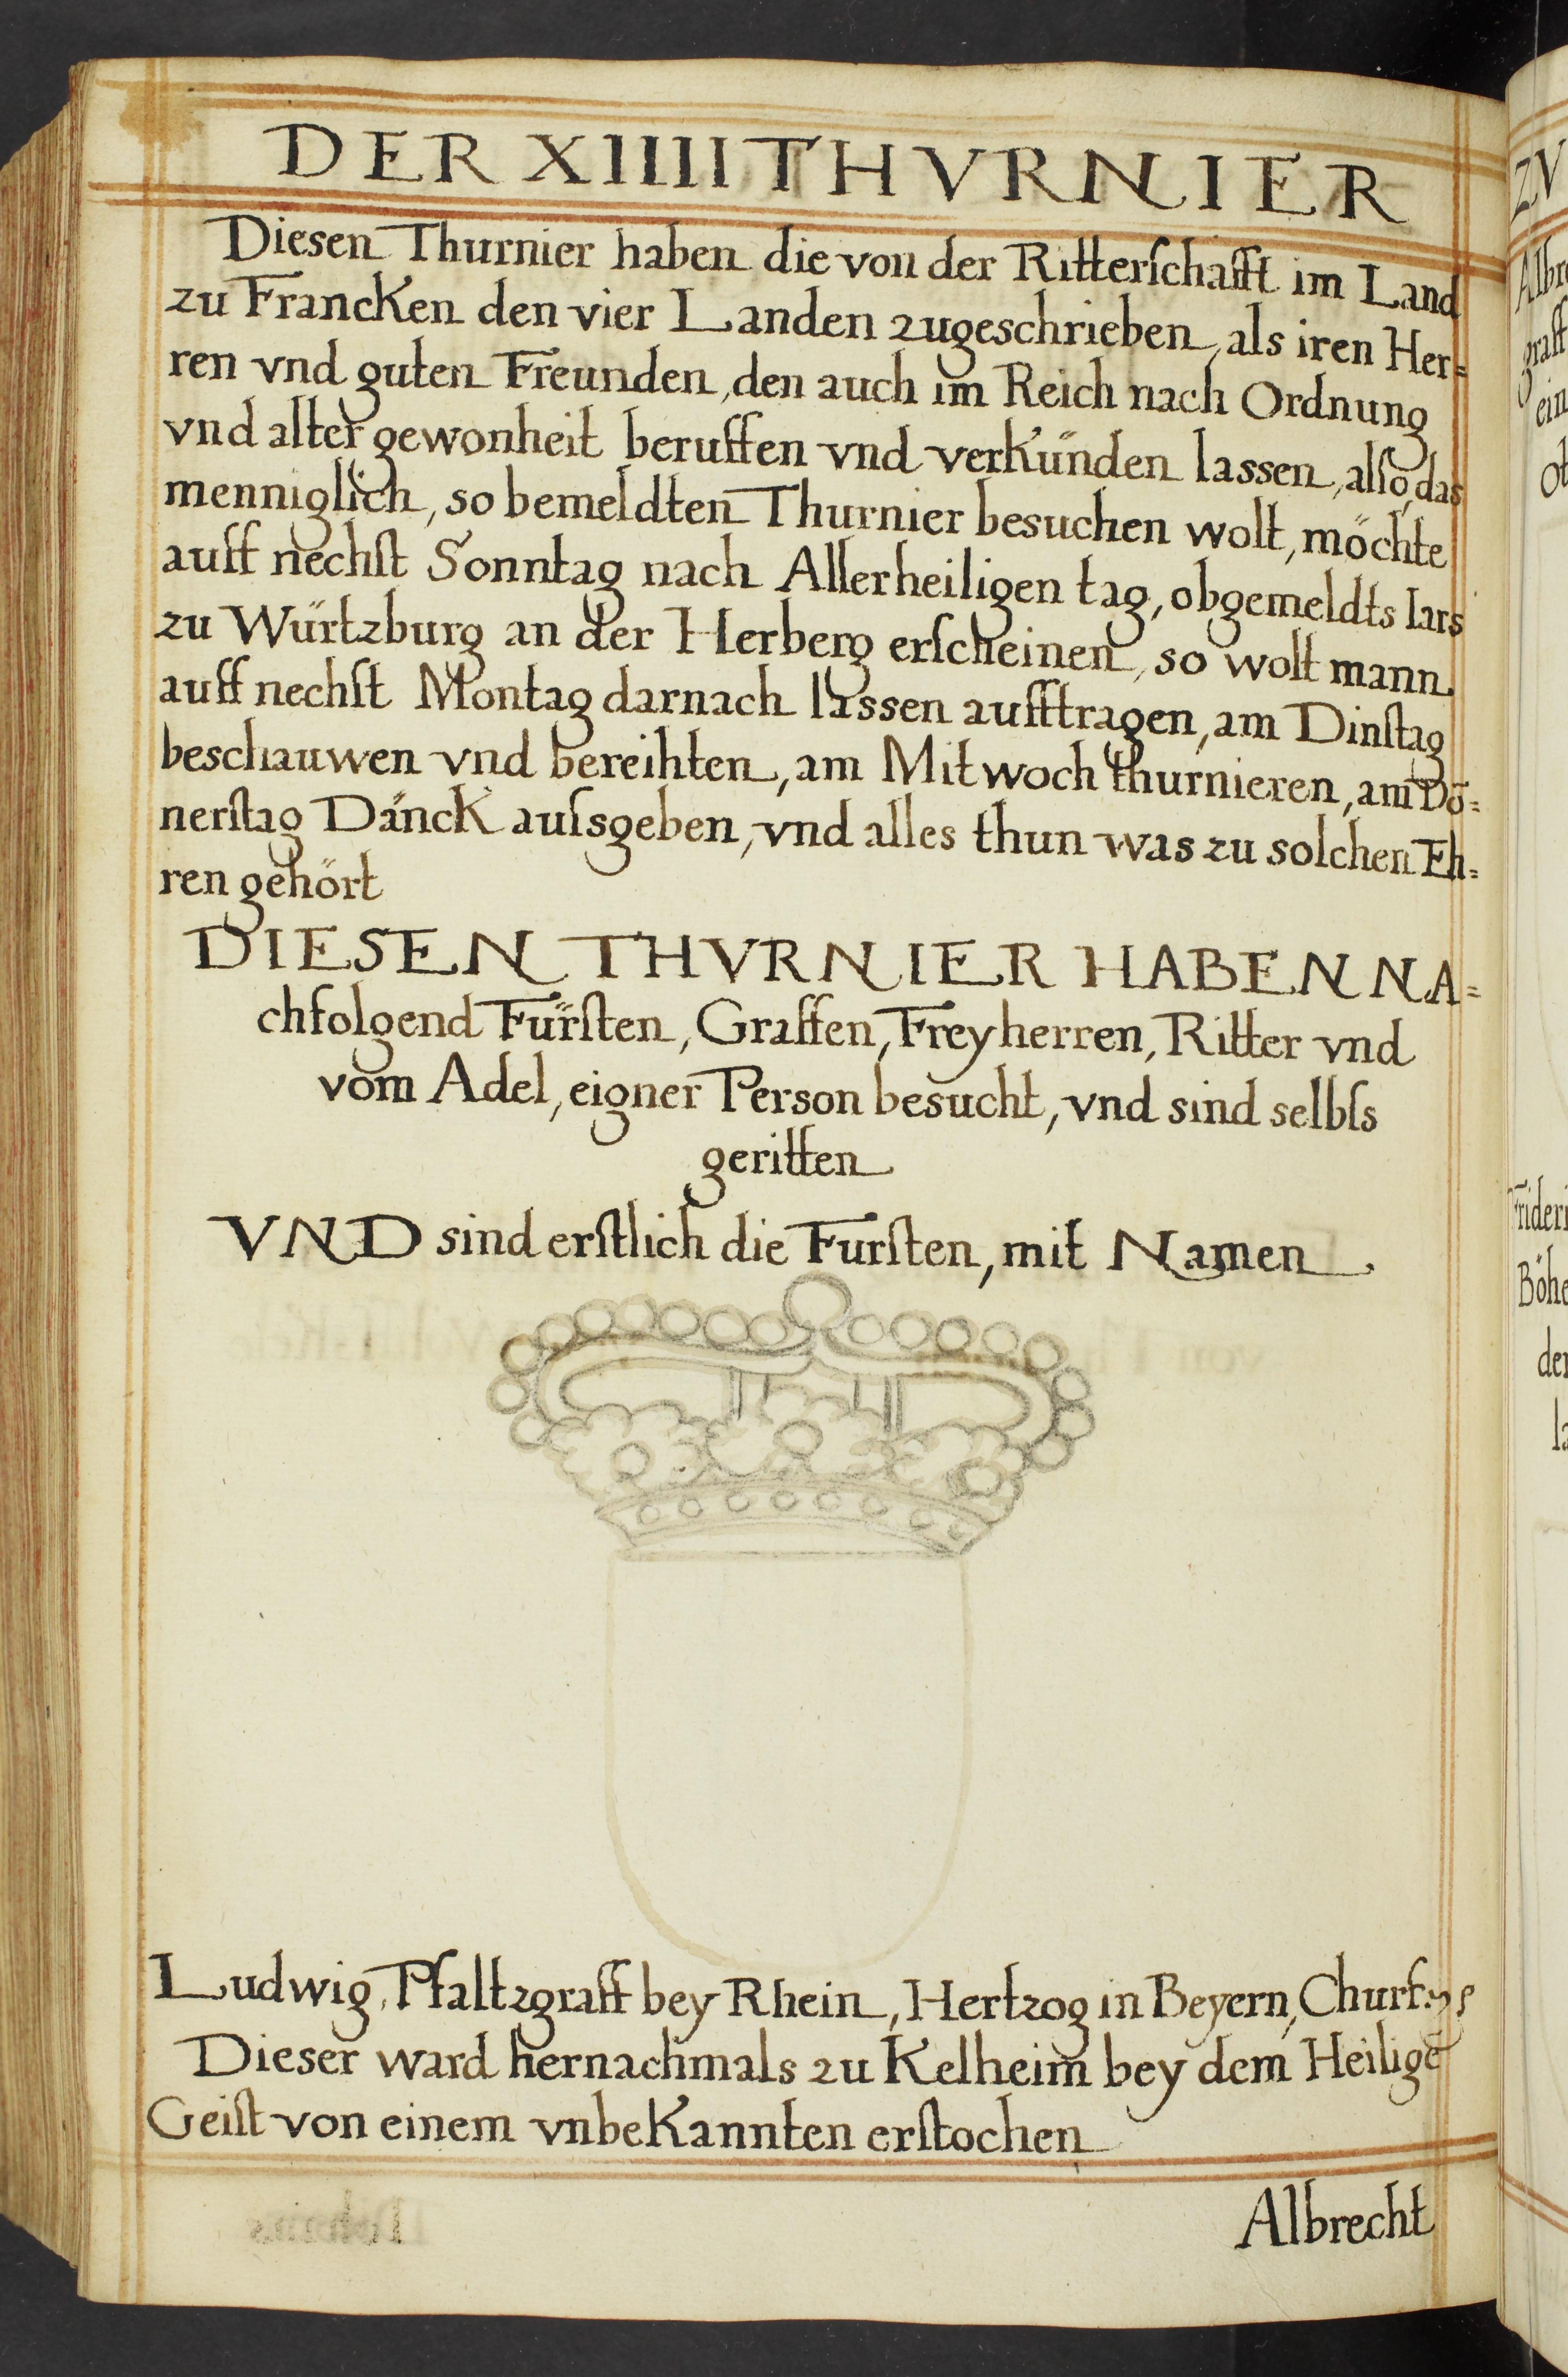 DER XIIIII THVRNIER
Diesen Thurnier haben die von der Ritterſchafft im Land
zu Francken den vier Landen zugeschrieben, als iren Her=
ren vnd guten Freunden, den auch im Reich nach Ordnung
vnd alter gewonheit beruffen vnd verkünden lassen, alſo, das
menniglich, so bemeldten Thurnier besuchen wolt, möchte
auff nechſt Sonntag nach Allerheiligen tag, obgemeldts Iars
zu Würtzburg an der Herberg erſcheinen, so wolt mann
auff nechſt Montag darnach lassen aufftragen, am Dinſtag
beschauwen vnd bereihten, am Mitwoch thurnieren, am Dō=
nerſtag Dänck auſsgeben, vnd alles thun was zu solchen Eh=
ren gehört
DIESEN THVRNIER HABEN NA=
chfolgend Fürſten, Graffen, Freyherren, Ritter vnd
vom Adel, eigner Person besucht, vnd sind selbſs
geritten
VND sind erſtlich die Furſten, mit Namen
Ludwig, Pfaltzgraff bey Rhein, Hertzog in Beyern, Churf.
Dieser ward hernachmals zu Kelheim bey dem Heiligē
Geiſt von einem vnbekannten erſtochen
Albrecht
ZV
Albre
graff
ein
ot
Frideri
Böhe
der
la